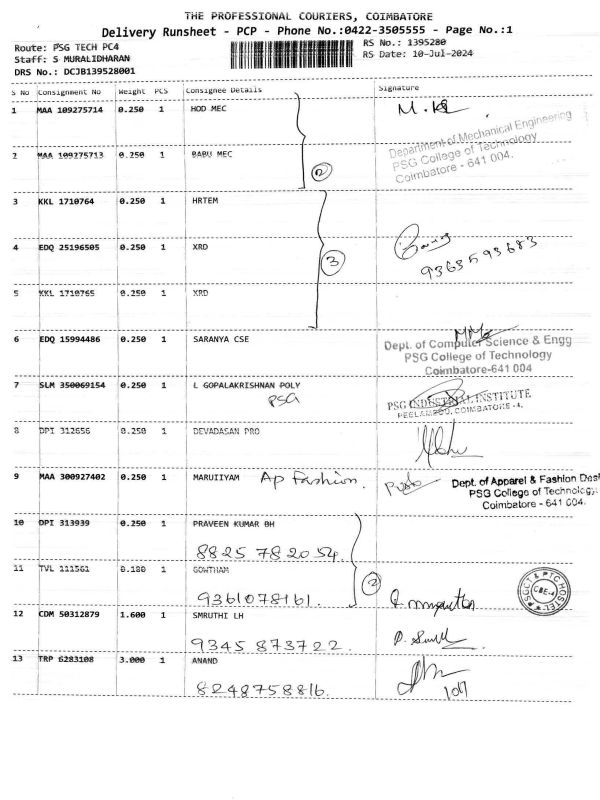 THE PROFESSIONAL COURIERS, COIMBATORE
Delivery Runsheet - PCP - Phone No.:0422-3505555 - Page No.:1
Route: PSG TECH PC4
RS No.: 1395280
Staff: S MURALIDHARAN
RS Date: 10-Jul-2024
DRS No.: DCJB139528001
S No Consignment No Weight PCS Consignee Details Signature
1 MAA 109275714 0.250 1 HOD MEC
Department of Mechanical Engineering
PSG College of Technology
Coimbatore - 641 004.
2 MAA 109275713 0.250 1 BABU MEC
2
3 KKL 1710764 0.250 1 HRTEM
4 EDQ 25196505 0.250 1 XRD
3
9363593683
5 KKL 1710765 0.250 1 XRD
6 EDQ 15994486 0.250 1 SARANYA CSE
Dept. of Computer Science & Engg
PSG College of Technology
Coimbatore-641 004
7 SLM 350069154 0.250 1 L GOPALAKRISHNAN POLY
PSG
PSG INDUSTRIAL INSTITUTE
PEELAMEDU, COIMBATORE - 4.
8 DPI 312656 0.250 1 DEVADASAN PRO
9 MAA 300927402 0.250 1 MARUIIYAM Ap Fashion.
Dept. of Apparel & Fashion Desi
PSG College of Technology
Coimbatore - 641 004.
10 DPI 313939 0.250 1 PRAVEEN KUMAR BH
8825 782054.
11 TVL 111561 0.180 1 GOWTHAM
9361078161.
2
PSGCT & PTC HOSTEL
CBE-4
12 CDM 50312879 1.600 1 SMRUTHI LH
9345 873722.
13 TRP 6283108 3.000 1 ANAND
8248758816.